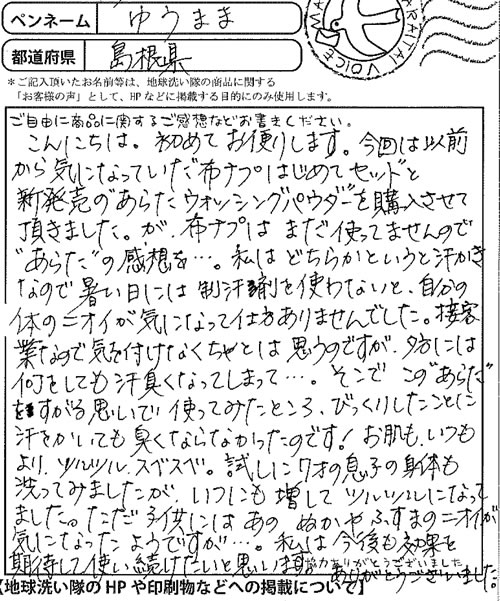 ペンネーム ゆうまま
都道府県 島根県
*ご記入頂いたお名前等は、地球洗い隊の商品に関する
「お客様の声」として、HPなどに掲載する目的にのみ使用します。
ご自由に商品に関するご感想などお書きください。
こんにちは。初めてお便りします。今回は以前
から気になっていた"布ナプはじめてセット"と
新発売の"あらたウォッシングパウダー"を購入させて
頂きました。が、布ナプはまだ使ってませんので
"あらた"の感想を…。私はどちらかというと汗かき
なので暑い日には制汗剤を使わないと、自分の
体のニオイが気になって仕方ありませんでした。接客
業なので気を付けなくちゃとは思うのですが、夕方には
何をしても汗臭くなってしまって…。そこでこの"あらた"
をすがる思いで使ってみたところ、びっくりしたことに
汗をかいても臭くならなかったのです!お肌も、いつも
より、ツルツル、スベスベ。試しに7才の息子の身体も
洗ってみましたが、いつにも増してツルツルになって
ました。ただ子供にはあのぬかやふすまのニオイが
気になったようですが…。私は今後も効果を
期待して使い続けたいと思います。ありがとうございました。
協力ありがとうございました
【地球洗い隊のHPや印刷物などへの掲載について】